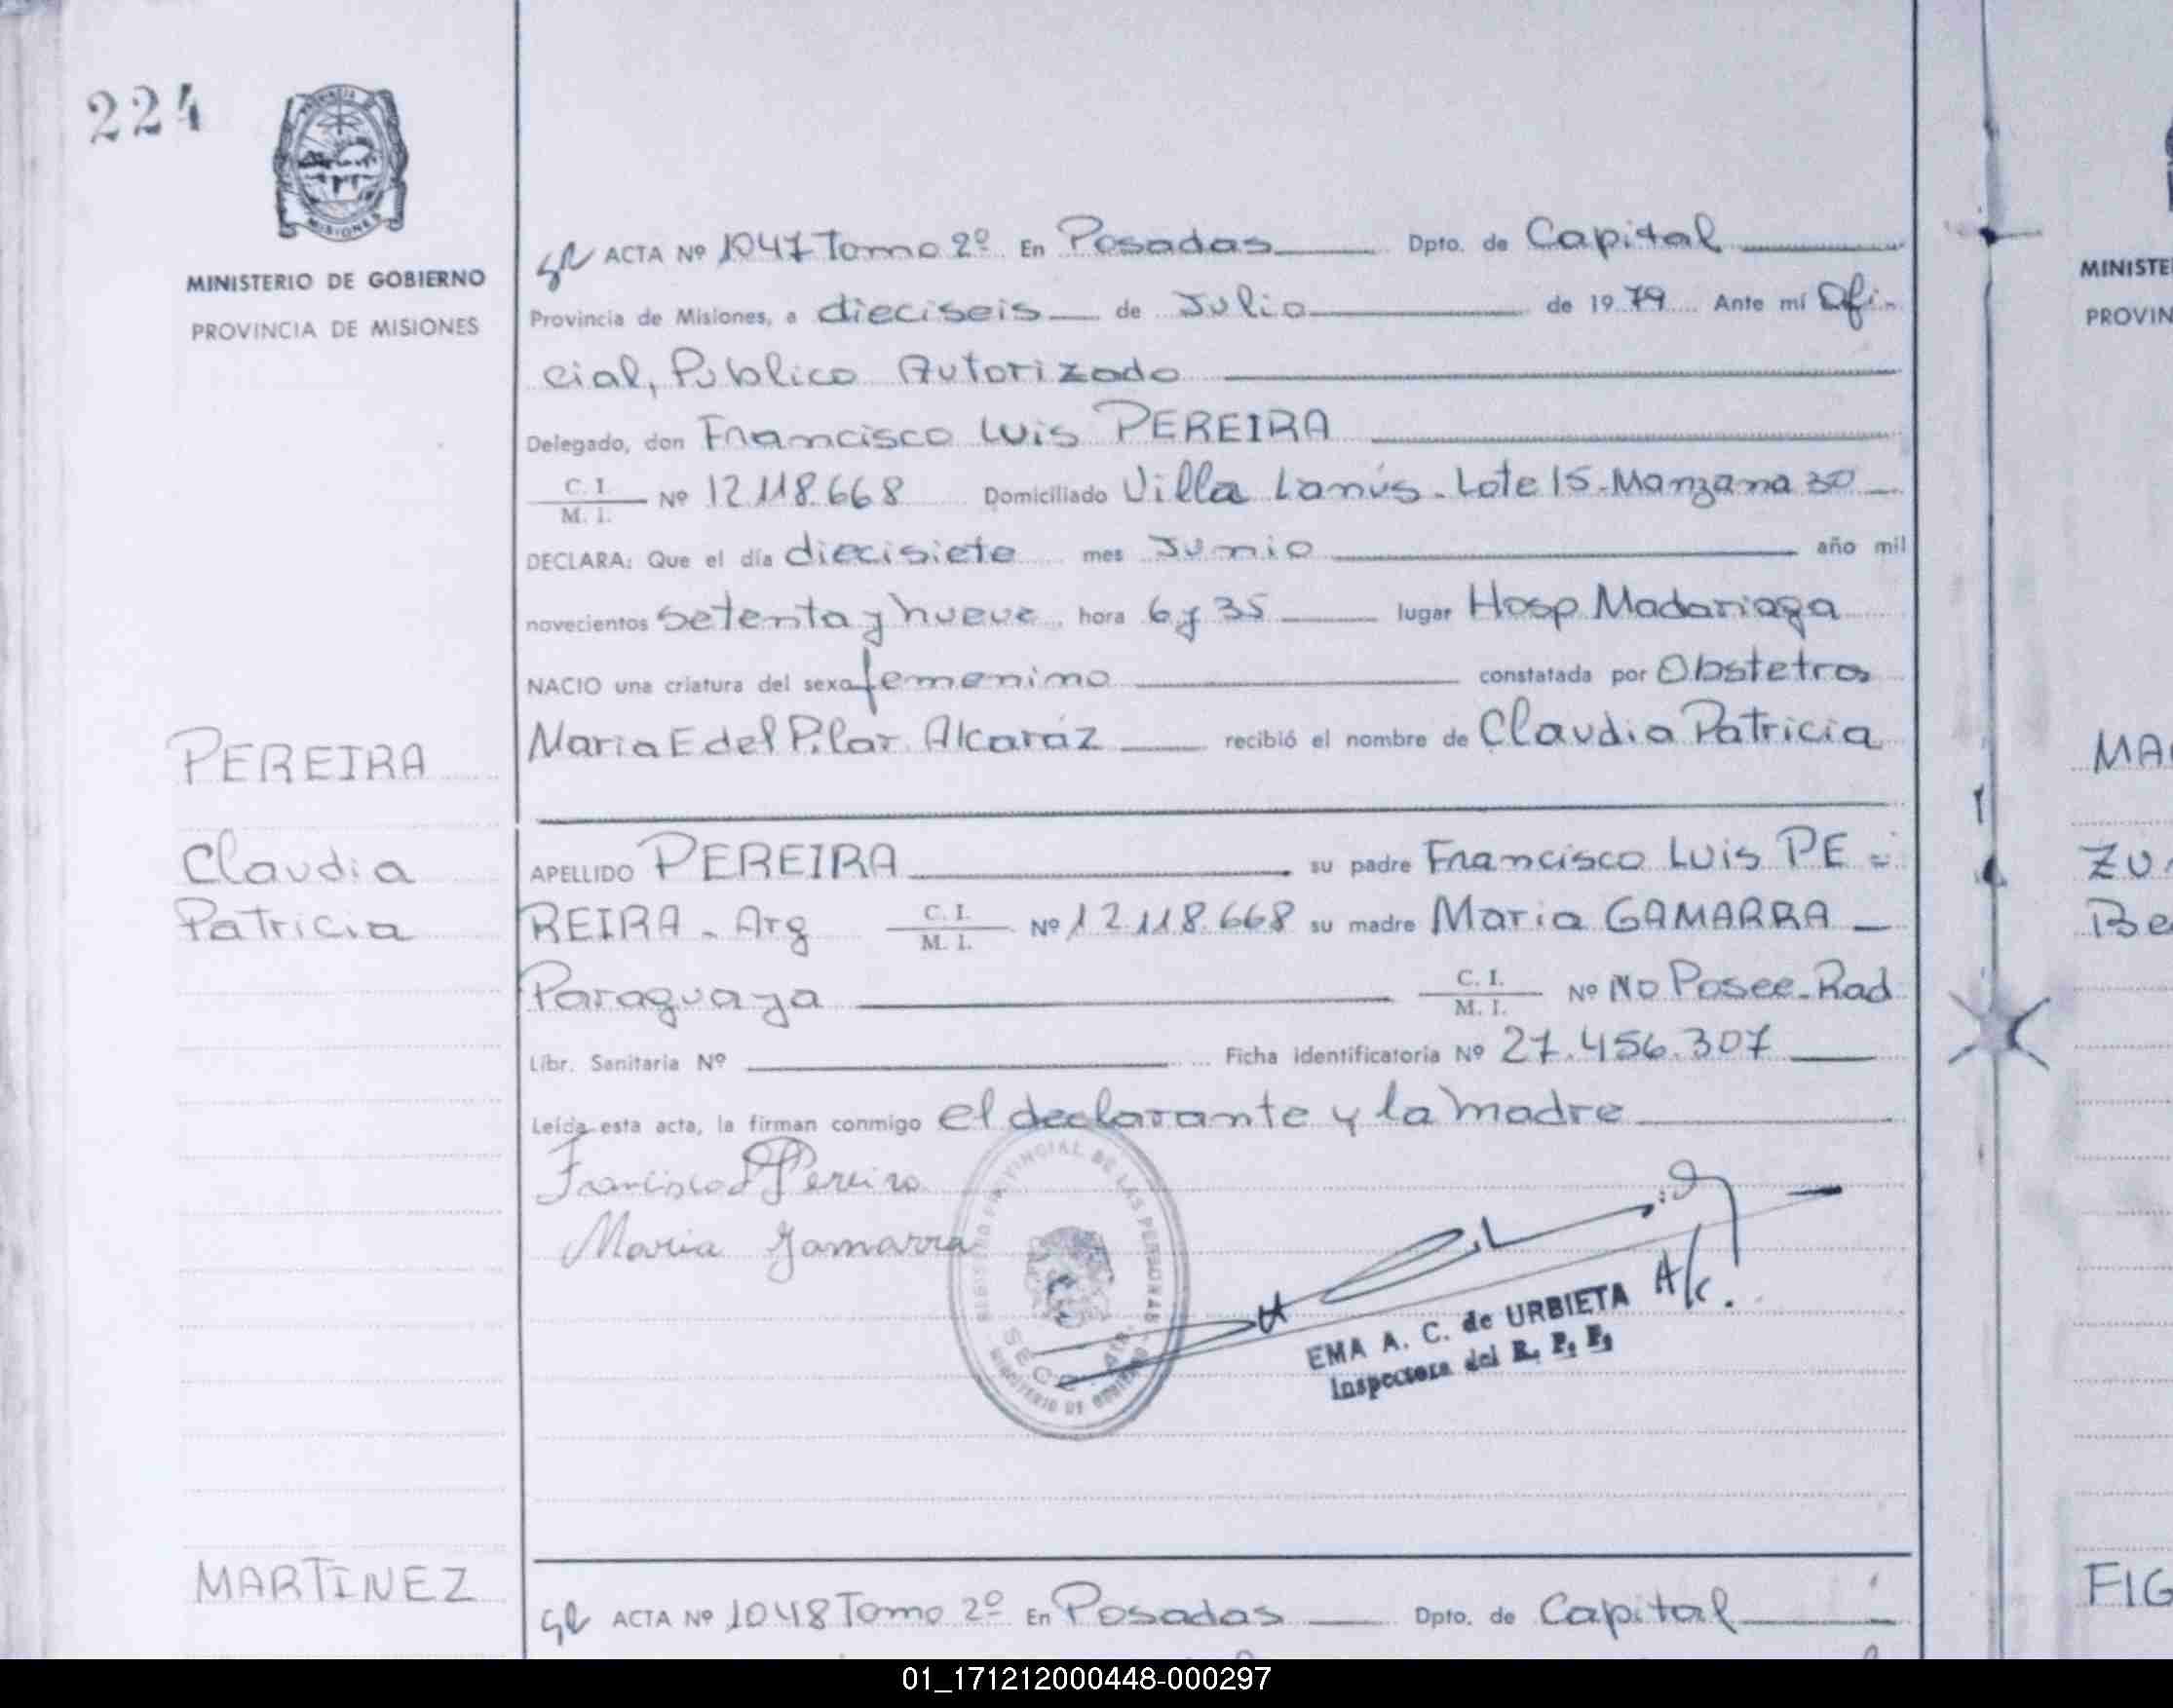 224
MINISTERIO DE GOBIERNO
PROVINCIA DE MISIONES
ACTA Nº 1047 Tomo 2º En Posadas Dpto. de Capital
Provincia de Misiones, a dieciseis de Julio de 19 79 Ante mí Ofi-
cial, Público Autorizado
Delegado, don Francisco Luis PEREIRA
C. I.
M. I. Nº 12.118.668 Domiciliado Villa Lanús - Lote 15 - Manzana 30
DECLARA: Que el día diecisiete mes Junio año mil
novecientos setenta y nueve hora 6 y 35 lugar Hosp Madariaga
NACIO una criatura del sexo femenino constatada por Obstetra
Maria E del Pilar Alcaráz recibió el nombre de Claudia Patricia
PEREIRA
Claudia
Patricia
APELLIDO PEREIRA su padre Francisco Luis PE-
REIRA - Arg C. I.
M. I. Nº 12.118.668 su madre Maria GAMARRA
Paraguaya C. I.
M. I. Nº No Posee - Rad
Libr. Sanitaria Nº Ficha identificatoria Nº 27.456.307
Leída esta acta, la firman conmigo el declarante y la madre
Francisco L Pereira
Maria Gamarra
REGISTRO PROVINCIAL DE LAS PERSONAS
MINISTERIO DE GOBIERNO
A/c.
EMA A. C. de URBIETA
Inspectora del R. P. P.
MARTINEZ
ACTA Nº 1048 Tomo 2º En Posadas Dpto. de Capital
MINISTE
PROVIN
MA
ZU
Be
FIG
01_171212000448-000297